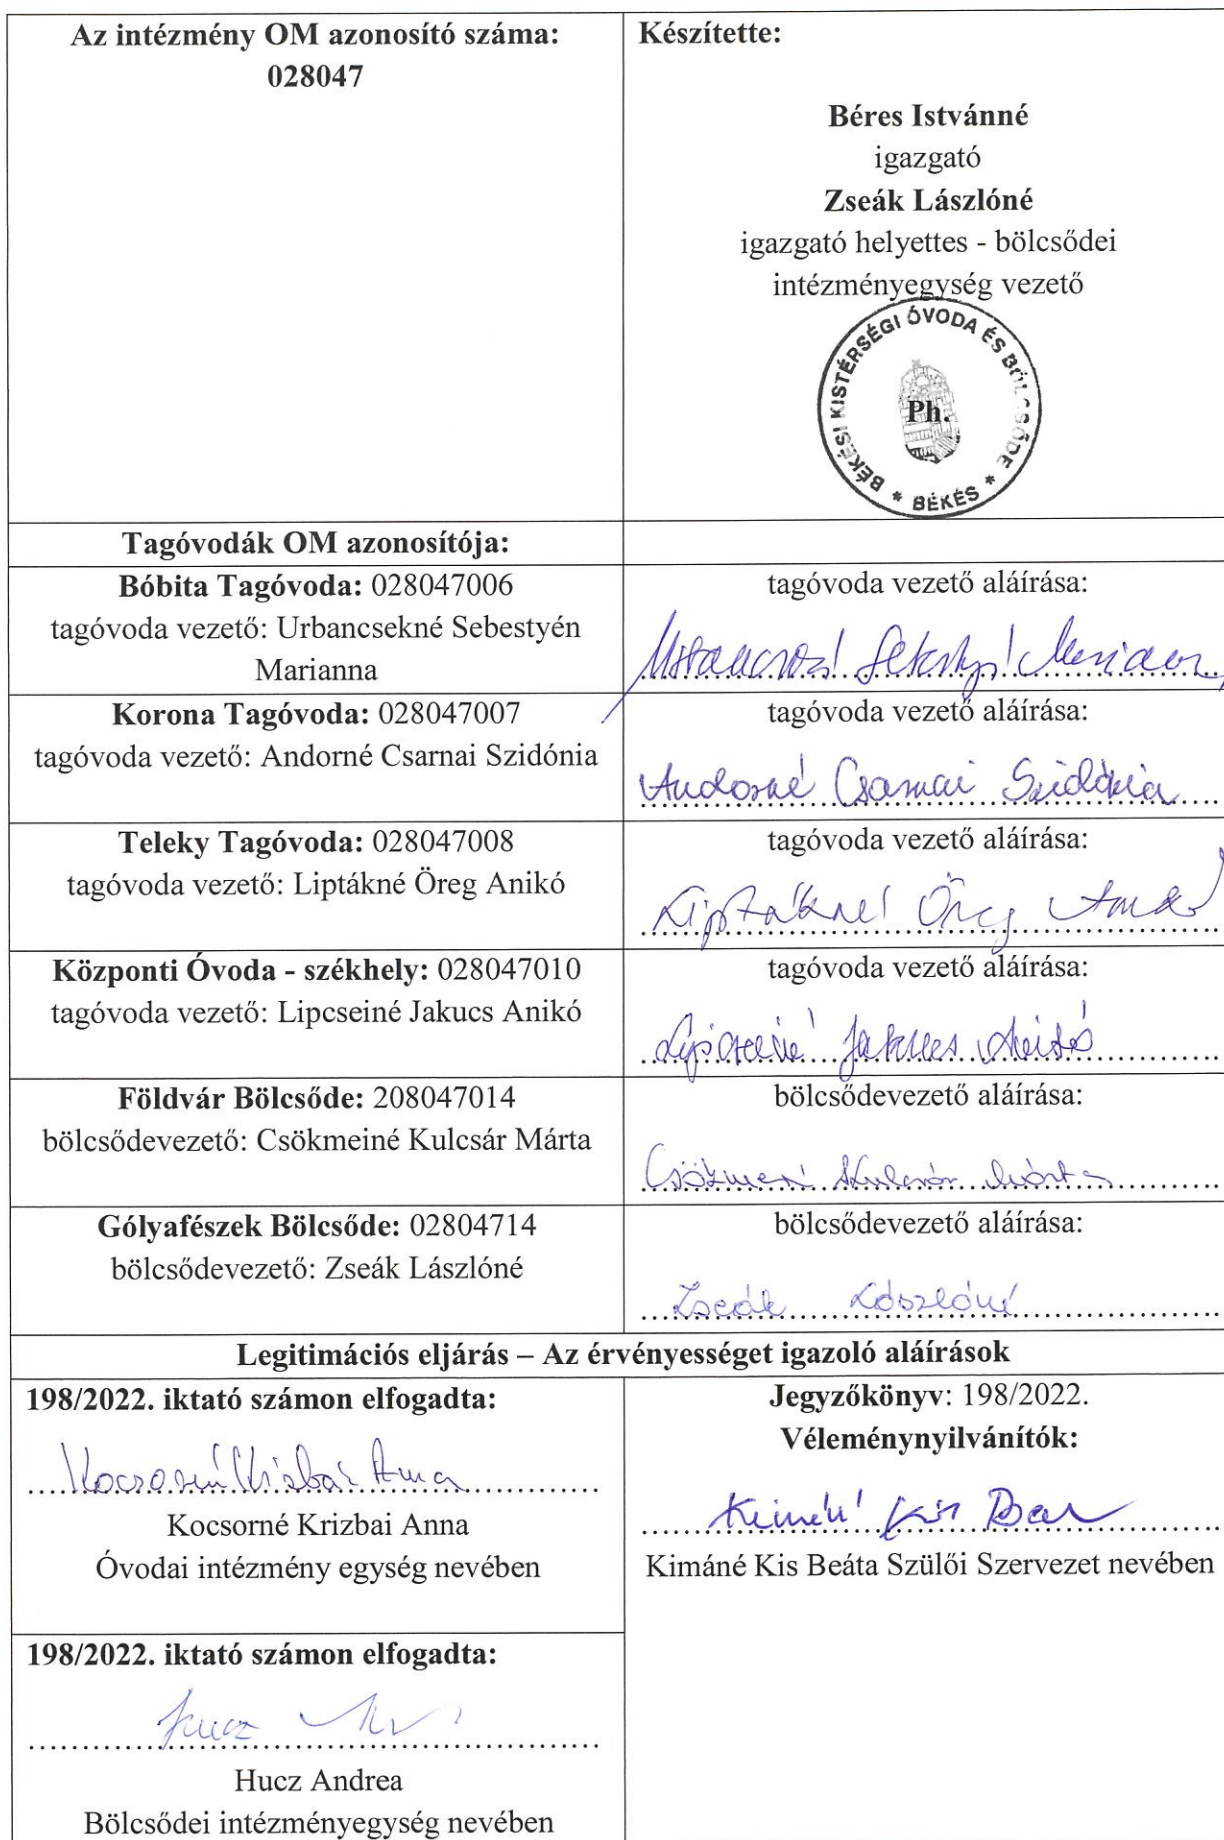 Az intézmény OM azonosító száma:
028047
Készítette:
Béres Istvánné
igazgató
Zseák Lászlóné
igazgató helyettes - bölcsődei
intézményegység vezető
BÉKÉSI KISTÉRSÉGI ÓVODA ÉS BÖLCSŐDE * BÉKÉS *
Ph.
Tagóvodák OM azonosítója:
Bóbita Tagóvoda: 028047006
tagóvoda vezető: Urbancsekné Sebestyén
Marianna
tagóvoda vezető aláírása:
Korona Tagóvoda: 028047007
tagóvoda vezető: Andorné Csarnai Szidónia
tagóvoda vezető aláírása:
Andorné Csarnai Szidónia
Teleky Tagóvoda: 028047008
tagóvoda vezető: Liptákné Öreg Anikó
tagóvoda vezető aláírása:
Liptákné Öreg Anikó
Központi Óvoda - székhely: 028047010
tagóvoda vezető: Lipcseiné Jakucs Anikó
tagóvoda vezető aláírása:
Lipcseiné Jakucs Anikó
Földvár Bölcsőde: 208047014
bölcsődevezető: Csökmeiné Kulcsár Márta
bölcsődevezető aláírása:
Csökmeiné Kulcsár Márta
Gólyafészek Bölcsőde: 02804714
bölcsődevezető: Zseák Lászlóné
bölcsődevezető aláírása:
Zseák Lászlóné
Legitimációs eljárás – Az érvényességet igazoló aláírások
198/2022. iktató számon elfogadta:
Kocsorné Krizbai Anna
Kocsorné Krizbai Anna
Óvodai intézmény egység nevében
Jegyzőkönyv: 198/2022.
Véleménynyilvánítók:
Kimáné Kis Beáta Szülői Szervezet nevében
198/2022. iktató számon elfogadta:
Hucz
Hucz Andrea
Bölcsődei intézményegység nevében